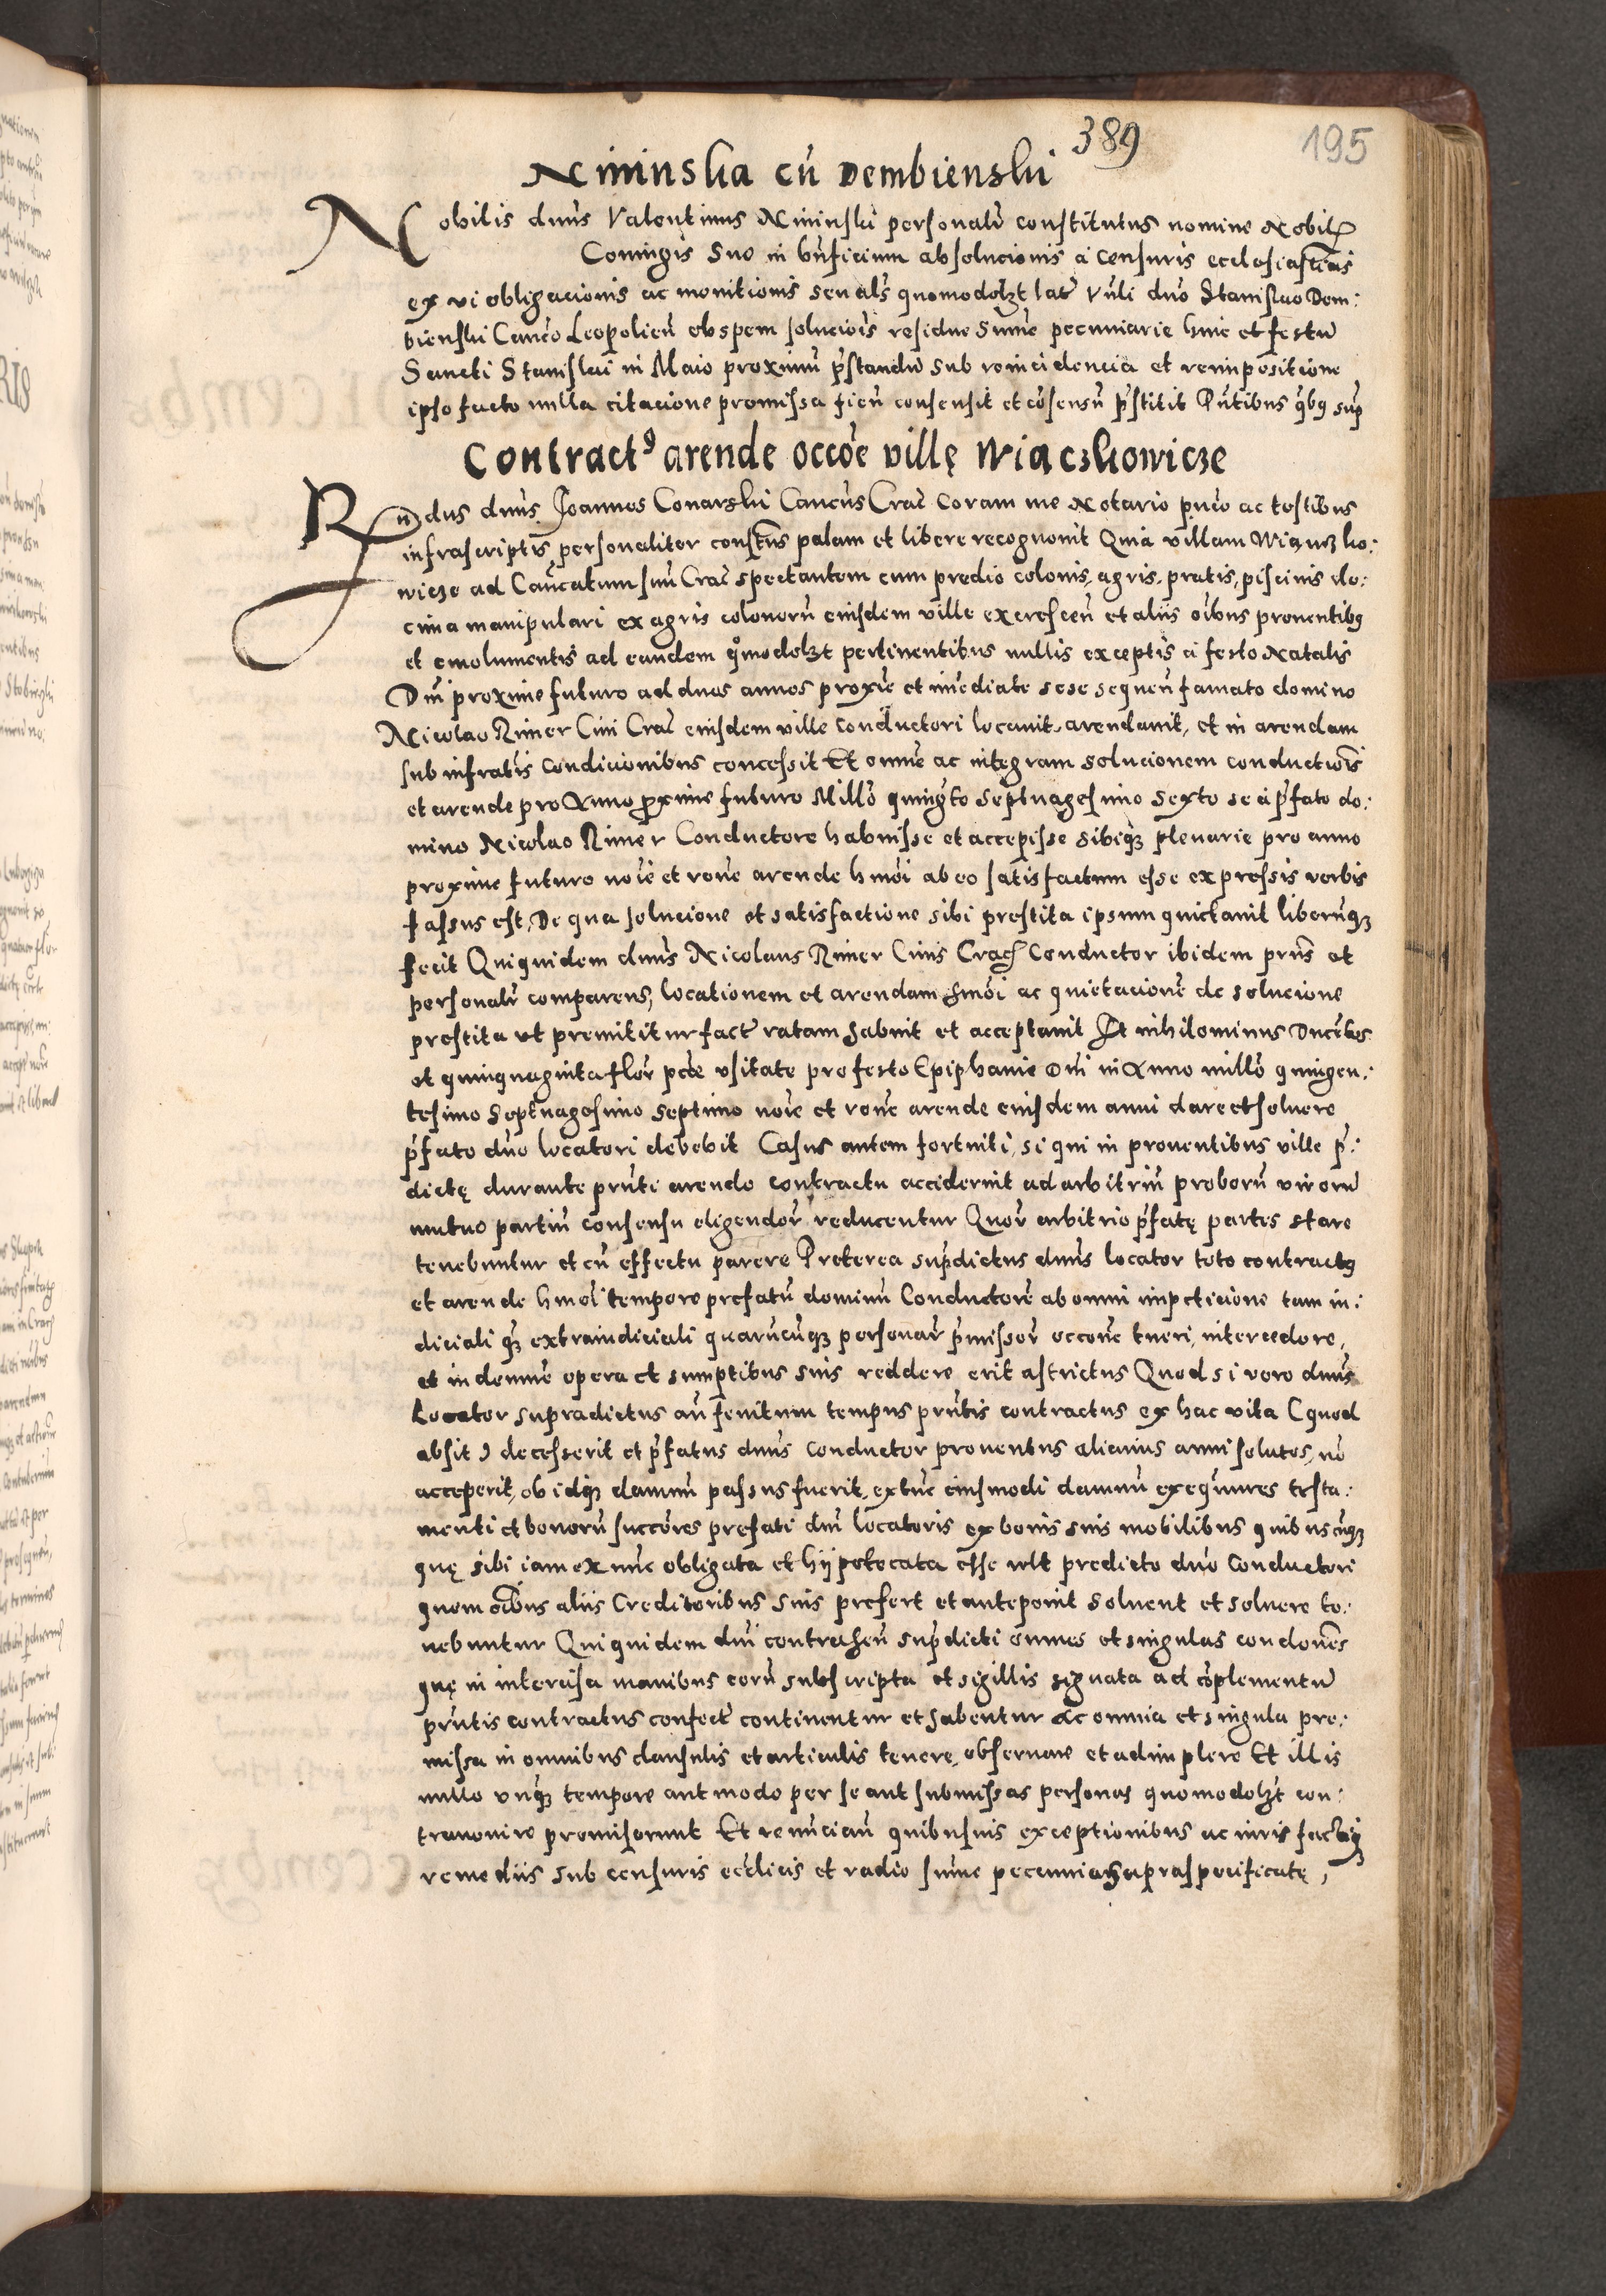 389
195
Niminska cū Dembienski
Nobilis dnūs Valentinus Niminski personalr̄ constitutus nomine Nobilꝭ
Coniugis Sue in bn̄ficium absolucionis a Censuris ecclesiasticis
ex vi obligacionis ac monitionis seu als̄ quomodolꝫt lat̄ Vn̄li dn̄o Stanislao Dem:
bienski Can̄co Leopolien̄ ob spem solucio̅is residue Sum̄e pecuniarie hinc et festū
Sancti Stanislai in Maio proximū pr̄standū sub reincidencia et reimpositione
ipso facto nulla citacione premissa fien̄ consensit et cōsensū pr̄stitit Pn̄tibus qbꝰ sup̄
Contractꝰ arende occōe villę Wiączkowicze
Rn̄dus dnūs Joannes Conarski Can̄cus Crac̄ coram me Notario pu̅co ac testibus
infrascriptis personaliter consttns̄ palam et libere recognouit Quia villam Wiączko:
wicze ad Can̄catum suū Crac̄ spectantem cum predio colonis, agris, pratis, piscinis de:
cima manipulari ex agris colonorū eiusdem ville excrescen̄ et aliis oībus prouentibꝰ
et emolumentis ad eandem qͦmodolꝫt pertinentibus nullis exceptis a festo Natalis
Dnī proxime futuro ad duos annos proxīe et imēdiate sese sequen̄ famato domino
Nicolao Rimer Ciui Crac̄ eiusdem ville conductori locauit, arendauit, et in arendam
sub infratis̄ condicionibus concessit Et omnē ac integram solucionem conductio̅is
et arende pro Anno proxime futuro Millō quingto̅ Septuagesimo Sexto se a pr̄fato do:
mino Nicolao Rimer Conductore habuisse et accepisse sibiqꝫ plenarie pro anno
proxime futuro noīe et ronē arende hmōi ab eo satisfactum esse expressis verbis
fassus est, De qua solucione et satisfactione sibi prestita ipsum quictauit liberūqꝫ
fecit Quiquidem dnūs Nicolaus Rimer Ciuis Crac̄ Conductor ibidem prn̄s et
personalr̄ comparens, locationem et arendam hmōi ac quietacionē de solucione
prestita vt premititur fact̄ ratam habuit et acceptauit Et nihilominus Ducētos
et quinquaginta flor̄ pcc̄e vsitate pro festo Epiphanie Dnī in Anno millō quingen:
tesimo Septuagesimo septimo noīe et ronē arende eiusdem anni dare et soluere
pr̄fato dn̄o locatori debebit Casus autem fortuiti, si qui in prouentibus ville pr̄:
dictę durante prn̄ti arende contractu acciderint ad arbitriū proborū virorū
mutuo partiū consensu eligendor̄ reducentur Quor̄ arbitrio pr̄fatę partes stare
tenebuntur et cū effectu parere Preterea supr̄dictus dnūs locator toto contractꝰ
et arende hmōi tempore prefatū dominū Conductorē ab omni impeticione tam iu:
diciali qꝫ extraiudiciali quarūcūqꝫ personar̄ pr̄missor̄ occonē tueri, intercedere,
et indemnē opera et sumptibus suis reddere erit astrictus Quod si vero dnūs
Locator supradictus an̄ finitum tempus prn̄tis contractus ex hac vita (quod
absit) decesserit et pr̄fatus dnūs conductor prouentus alicuius anni solutos, nō
acceperit, ob idqꝫ damnū passus fuerit, extūc eiusmodi damnū exequutores testa:
menti et bonorū succōres prefati dnī locatoris ex bonis suis mobilibus quibuscūqꝫ
quę sibi iam ex nūc obligata et hypotecata esse vult predicto dn̄o Conductori
quem oībus aliis Creditoribus suis prefert et anteponit soluent et soluere te:
nebuntur Quiquidem dnī contrahen̄ supr̄dicti omnes et singulas condōnes
quę in intercisa manibus eorū subscripta et sigillis signata ad cōplementū
prn̄tis contractus confect̄ continentur et habentur ac omnia et singula pre:
missa in omnibus clausulis et articulis tenere, obseruare et adimplere Et illis
nullo vnqꝫ tempore aut modo per se aut submissas personas quomodolꝫt con:
trauenire promiserunt Et renūciaū quibusuis exceptionibus ac iuris factiqꝫ
remediis sub censuris ecclīcis et vadio sum̄e pecuniarię supraspecificatę,